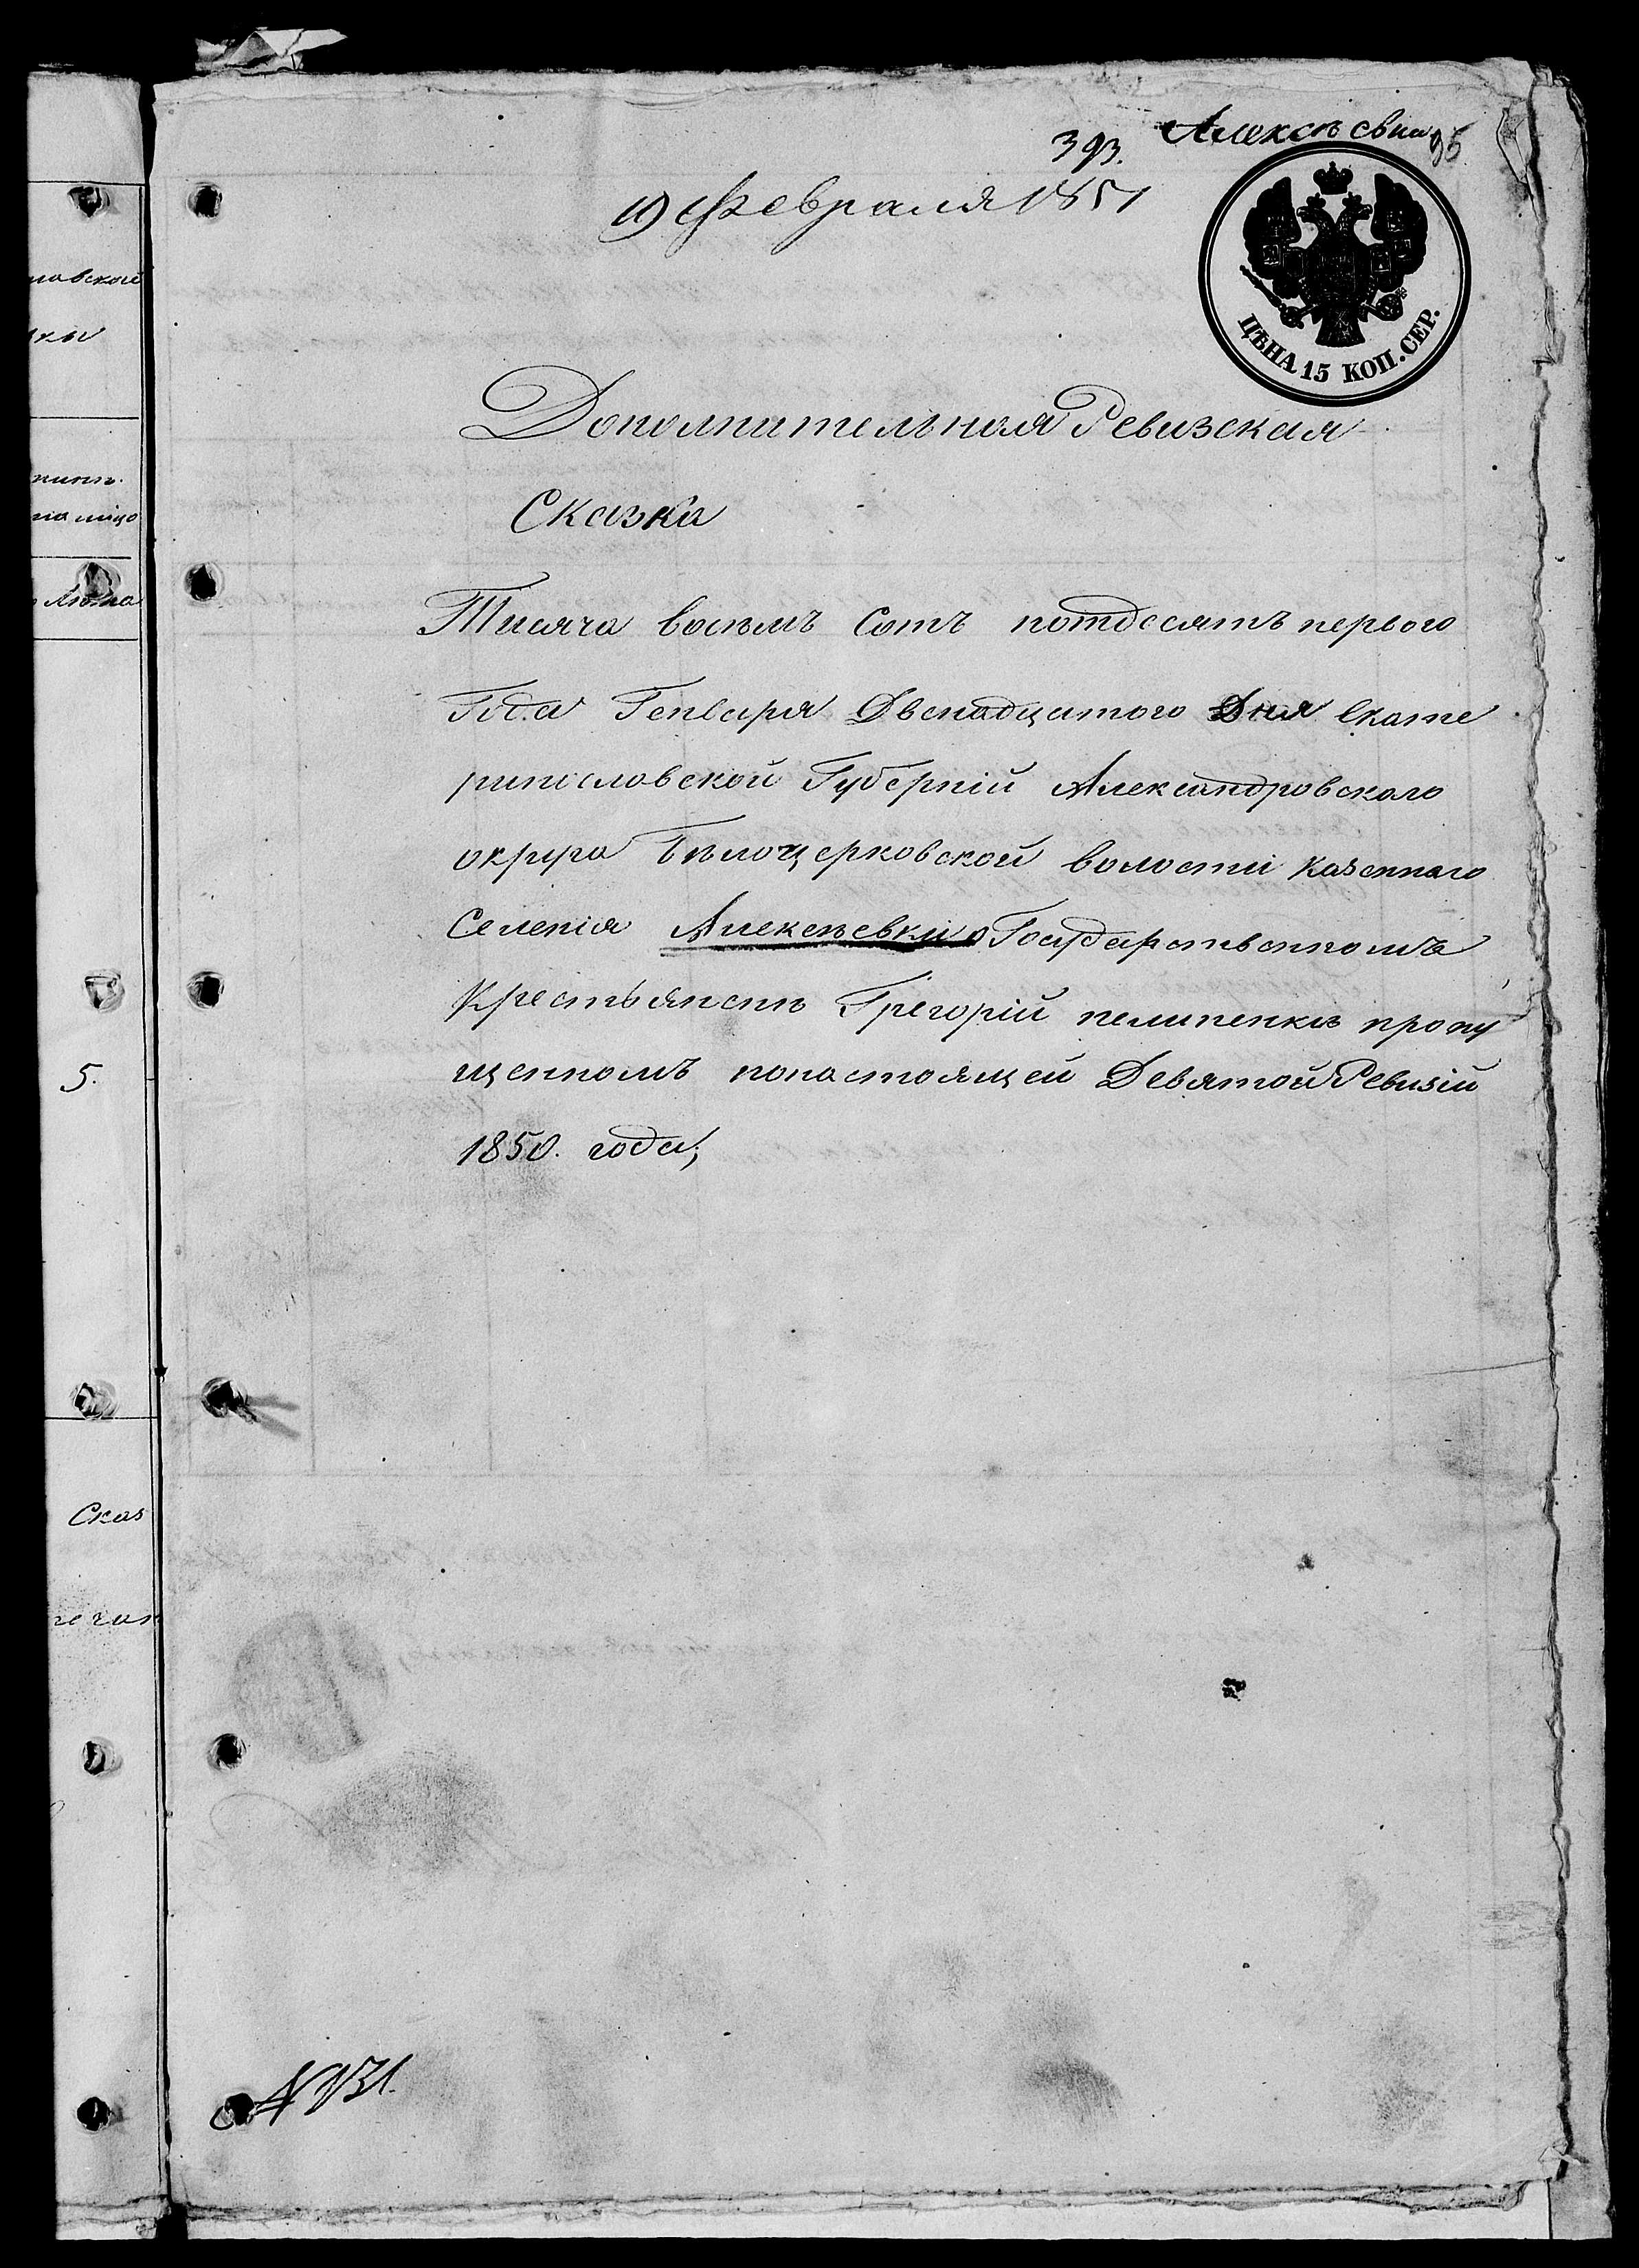 Алексѣевка
393.
19 Февраля 1851
ЦѢНА 15 КОП. СЕР.
Дополнительная Ревизская
Сказка
Тисяча восѣмъ Сотъ потдесятъ первого
Года Генваря Двенадцатого Дня Екате
ринославской Губернiй Александровского
округа Бѣлоцерковской волости казенного
Селенiя Алексѣевки о Государственномъ
Крестьянѣнѣ Грегорiй пелипенкѣ пропу
щенномъ понастоящей Девятой Ревизiй
1850. года;
лавской
5.
Сказ